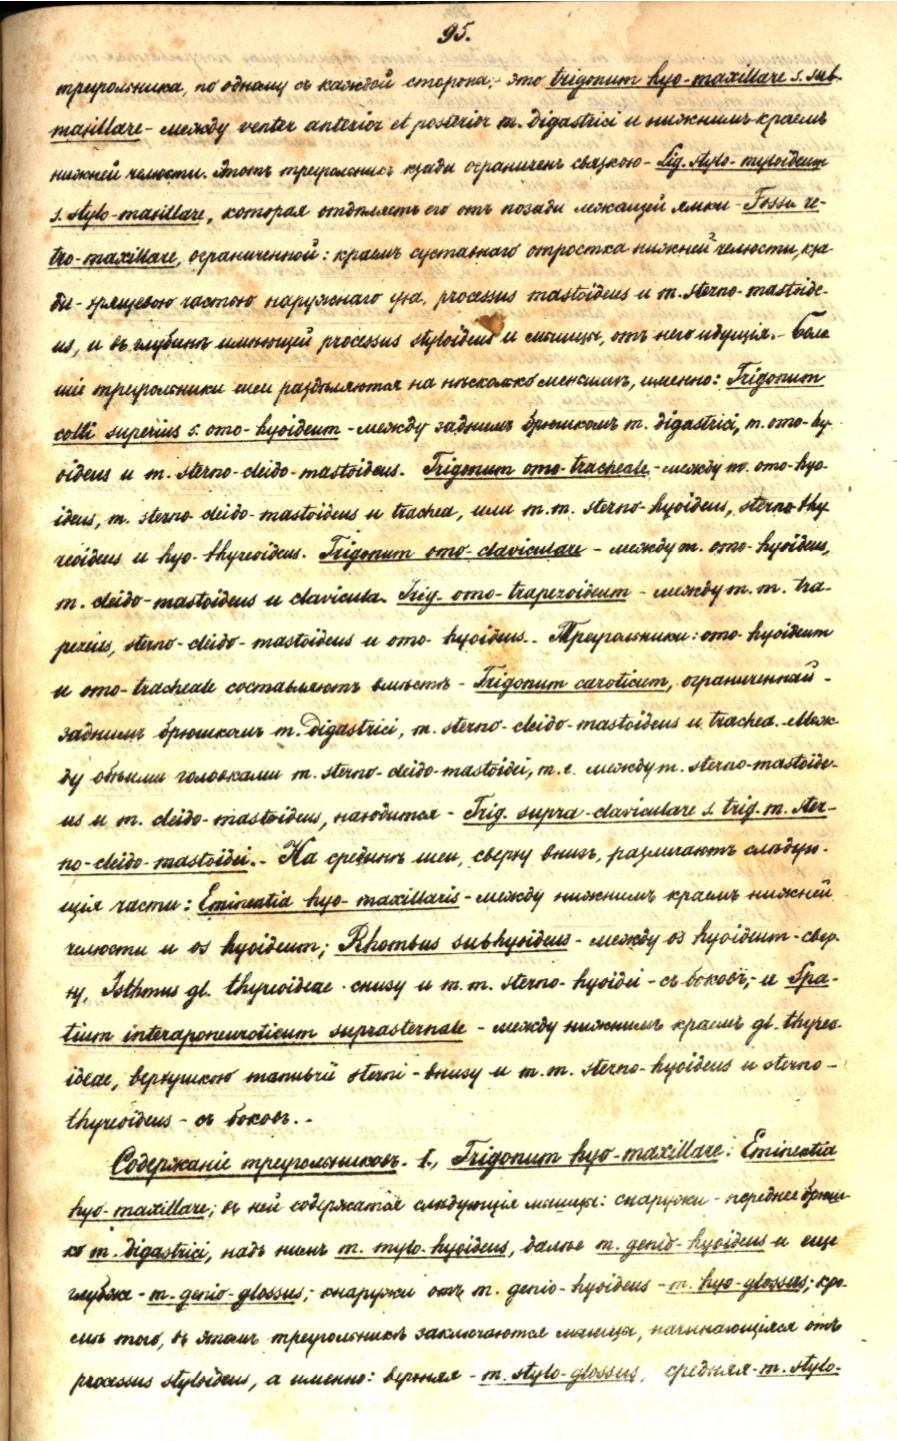 95.
треугольника, по одному съ каждой стороны,- это trigonum hyo-maxillare s. sub-
maxillare - между venter anterior et posterior m. digastrici и нижнимъ краемъ
нижней челюсти. Этотъ треугольникъ кзади ограниченъ связкою - Lig. stylo-myloideum
s. stylo-maxillare, которая отдѣляетъ его отъ позади лежащей ямки - Fossa re-
tro-maxillare, ограниченной: краемъ суставнаго отростка нижней челюсти, кза-
ди - хрящевою частью наружнаго уха, processus mastoideus и m. sterno-mastoide-
us, и въ глубинѣ имѣющей processus styloideus и мышцы, отъ него идущія.- Боль-
шіе треугольники шеи раздѣляются на нѣсколько меньшихъ, именно: Trigonum
colli superius s. omo-hyoideum - между заднимъ брюшкомъ m. digastrici, m. omo-hy-
oideus и m. sterno-cleido-mastoideus. Trigonum omo-tracheale - между m. omo-hyo-
ideus, m. sterno-cleido-mastoideus и trachea, или m.m. sterno-hyoideus, sterno-thy-
reoideus и hyo-thyreoideus. Trigonum omo-claviculare - между m. omo-hyoideus,
m. cleido-mastoideus и clavicula. Trig. omo-trapezoideum - между m.m. tra-
pezius, sterno-cleido-mastoideus и omo-hyoideus.- Треугольники: omo-hyoideum
и omo-tracheale составляютъ вмѣстѣ - Trigonum caroticum, ограниченный -
заднимъ брюшкомъ m. Digastrici, m. sterno-cleido-mastoideus и trachea. Меж-
ду обѣими головками m. sterno-cleido-mastoidei, т.е. между m. sterno-mastoide-
us и m. cleido-mastoideus, находится - Trig. supra-claviculare s. trig. m. ster-
no-cleido-mastoidei.- На срединѣ шеи, сверху внизъ, различаютъ слѣдую-
щія части: Eminentia hyo-maxillaris - между нижнимъ краемъ нижней
челюсти и os hyoideum; Rhombus subhyoideus - между os hyoideum - свер-
ху, Isthmus gl. thyreoideae - снизу и m.m. sterno-hyoidei - съ боковъ;- и Spa-
tium interaponeuroticum suprasternale - между нижнимъ краемъ gl. thyreo-
ideae, верхушкою sterni - внизу и m.m. sterno-hyoideus и sterno-
thyreoideus - съ боковъ.-
Содержаніе треугольниковъ. 1., Trigonum hyo-maxillare: Eminentia
hyo-maxillare; въ ней содержатся слѣдующія мышцы: снаружи - переднее брюш-
ко m. digastrici, надъ нимъ m. mylo-hyoideus, далѣе m. genio-hyoideus и еще
глубже - m. genio-glossus;- кнаружи отъ m. genio-hyoideus - m. hyo-glossus; кро-
мѣ того, въ этомъ треугольникѣ заключаются мышцы, начинающіяся отъ
processus styloideus, а именно: верхняя - m. stylo-glossus, средняя - m. stylo-